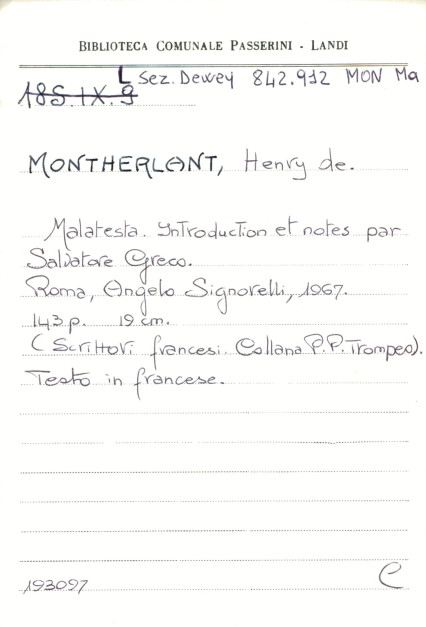 BIBLIOTECA COMUNALE PASSERINI - LANDI
L Sez. Dewey 842.912 MON Ma
185.IX.9
MONTHERLANT, Henry de.
Malatesta. Introduction et notes par
Salvatore Greco.
Roma, Angelo Signorelli, 1967.
143 p. 19 cm.
(Scrittori francesi. Collana P.P. Trompeo).
Testo in francese.
193097 C